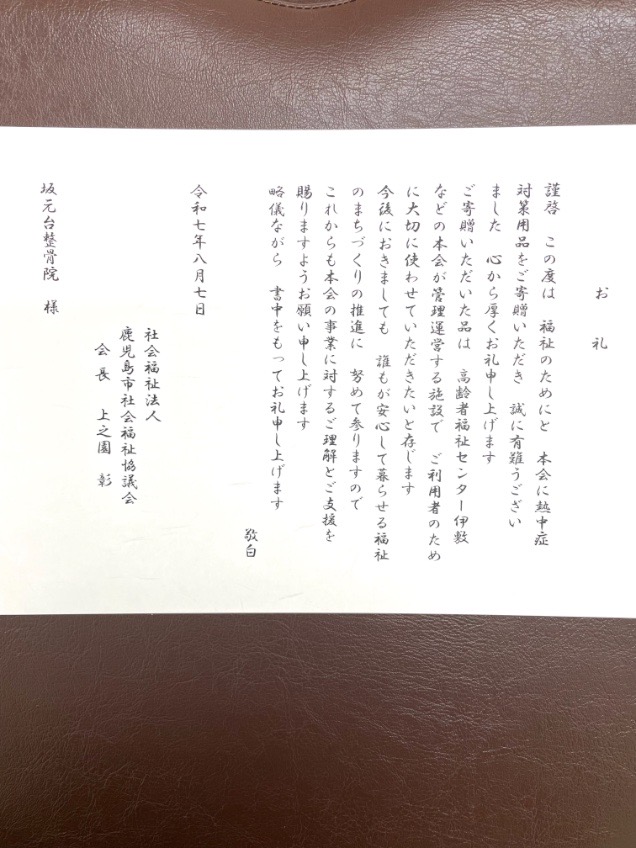 お 礼
謹啓 この度は 福祉のためにと 本会に熱中症
対策用品をご寄贈いただき 誠に有難うござい
ました 心から厚くお礼申し上げます
ご寄贈いただいた品は 高齢者福祉センター伊敷
などの本会が管理運営する施設で ご利用者のため
に大切に使わせていただきたいと存じます
今後におきましても 誰もが安心して暮らせる福祉
のまちづくりの推進に 努めて参りますので
これからも本会の事業に対するご理解とご支援を
賜りますようお願い申し上げます
略儀ながら 書中をもってお礼申し上げます
敬白
令和七年八月七日
社会福祉法人
鹿児島市社会福祉協議会
会長 上之園 彰
坂元台整骨院 様